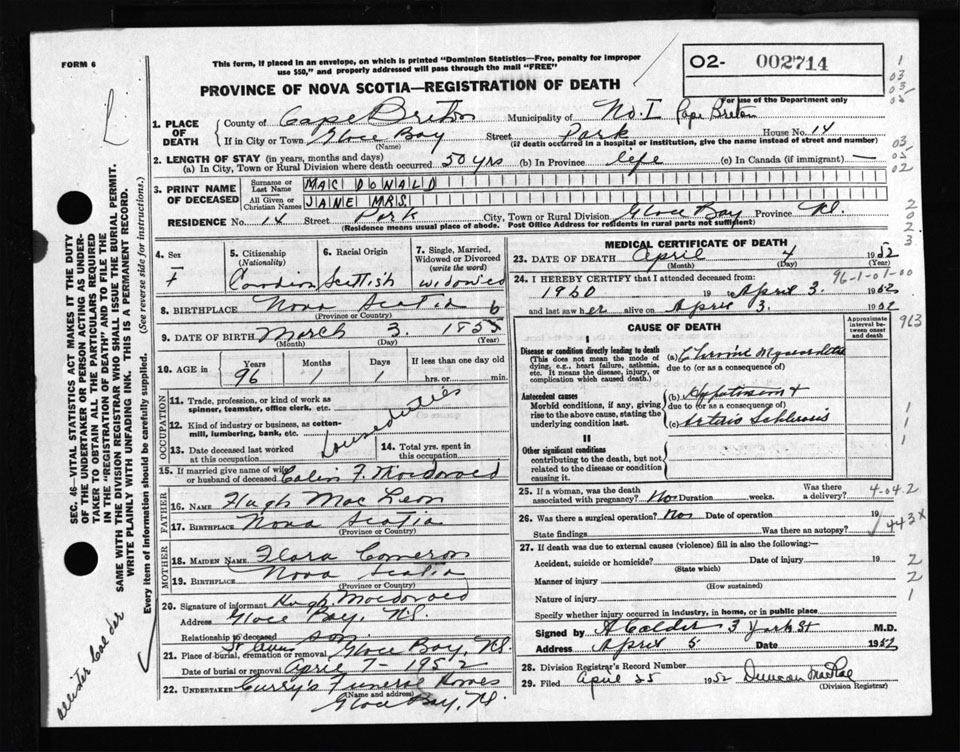 FORM 6
This form, if placed in an envelope, on which is printed "Dominion Statistics—Free, penalty for improper
use $50," and properly addressed will pass through the mail "FREE"
O2- 002714
For use of the Department only
PROVINCE OF NOVA SCOTIA—REGISTRATION OF DEATH
1. PLACE OF DEATH
County of Cape Breton Municipality of No. I Cape Breton
If in City or Town Glace Bay Street Park House No. 14
(Name) (If death occurred in a hospital or institution, give the name instead of street and number)
2. LENGTH OF STAY (in years, months and days)
(a) In City, Town or Rural Division where death occurred 50 yrs (b) In Province life (c) In Canada (if immigrant) —
3. PRINT NAME OF DECEASED
Surname or Last Name MAC DONALD
All Given or Christian Names JANE MRS.
RESIDENCE No. 14 Street Park City, Town or Rural Division Glace Bay Province N.S.
(Residence means usual place of abode. Post Office Address for residents in rural parts not sufficient)
4. Sex
F
5. Citizenship
(Nationality)
Canadian
6. Racial Origin
Scottish
7. Single, Married,
Widowed or Divorced
(write the word)
widowed
8. BIRTHPLACE Nova Scotia
(Province or Country)
6
9. DATE OF BIRTH March 3. 1855
(Month) (Day) (Year)
10. AGE in
Years 96
Months 1
Days 1
If less than one day old
hrs. or min.
OCCUPATION
11. Trade, profession, or kind of work as
spinner, teamster, office clerk, etc.
12. Kind of industry or business, as cotton-
mill, lumbering, bank, etc.
Household duties
13. Date deceased last worked
at this occupation
14. Total yrs. spent in
this occupation
15. If married give name of wife
or husband of deceased Colin F. Macdonald
FATHER
16. NAME Hugh Mac Lean
17. BIRTHPLACE Nova Scotia
(Province or Country)
MOTHER
18. MAIDEN NAME Flora Cameron
19. BIRTHPLACE Nova Scotia
(Province or Country)
20. Signature of informant Hugh Macdonald
Address Glace Bay, N.S.
Relationship to deceased son
21. Place of burial, cremation or removal Glace Bay, N.S.
Date of burial or removal April 7 - 1952
22. UNDERTAKER Curry's Funeral Homes
(Name and address)
Glace Bay, N.S.
MEDICAL CERTIFICATE OF DEATH
23. DATE OF DEATH April 4 1952
(Month) (Day)
96-1-01-00
24. I HEREBY CERTIFY that I attended deceased from:
1950 19 to April 3. 1952
and last saw her alive on April 3. 1952
CAUSE OF DEATH
Approximate
interval be-
tween onset
and death
I
Disease or condition directly leading to death
(This does not mean the mode of
dying, e.g., heart failure, asthenia,
etc. It means the disease, injury, or
complication which caused death.)
(a) Chronic Myocarditis
due to (or as a consequence of)
Antecedent causes
Morbid conditions, if any, giving
rise to the above cause, stating the
underlying condition last.
(b)
due to (or as a consequence of)
(c)
II
Other significant conditions
contributing to the death, but not
related to the disease or condition
causing it.
25. If a woman, was the death
associated with pregnancy? No Duration weeks. Was there
a delivery?
4-04.2
26. Was there a surgical operation? No Date of operation 19
State findings Was there an autopsy?
443X
27. If death was due to external causes (violence) fill in also the following:—
Accident, suicide or homicide? Date of injury 19
(State which)
Manner of injury
(How sustained)
Nature of injury
Specify whether injury occurred in industry, in home, or in public place
Signed by A Calder 3 York St M.D.
Address April 5 Date 1952
28. Division Registrar's Record Number
29. Filed April 25 1952 Duncan MacRae
(Division Registrar)
SEC. 46—VITAL STATISTICS ACT MAKES IT THE DUTY
OF THE UNDERTAKER OR PERSON ACTING AS UNDER-
TAKER TO OBTAIN ALL THE PARTICULARS REQUIRED
IN THE "REGISTRATION OF DEATH" AND TO FILE THE
SAME WITH THE DIVISION REGISTRAR WHO SHALL ISSUE THE BURIAL PERMIT.
WRITE PLAINLY WITH UNFADING INK. THIS IS A PERMANENT RECORD.
Every item of information should be carefully supplied. (See reverse side for instructions.)
1
03
03
05
03
05
02
2
0
2
3
913
1
1
1
2
2
1